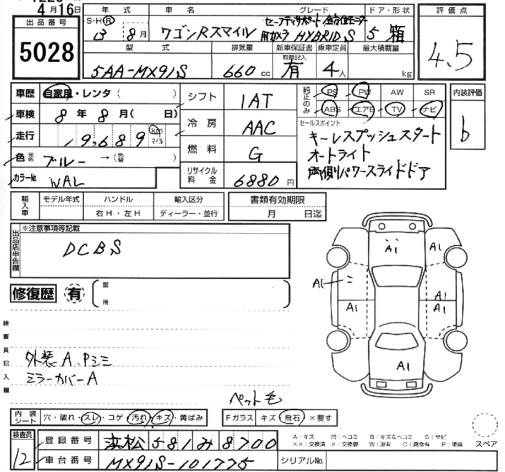 4月16
出品番号 年式 車名 グレード ドア・形状 評価点
5028
S・H・R 3 8月 ワゴンRスマイル セーフティサポート 全方位モニター用カメラ HYBRID S 5 箱
4.5
型式 排気量 新車保証書 乗車定員 最大積載量
5AA-MX91S 660cc 有 4人 kg
車歴 自家用・レンタ( )
車検 8年8月( 日)
走行 19,689 km マイル
色 ブルー →( )
カラーNo WAL
シフト 1AT
冷房 AAC
燃料 G
リサイクル料金 6880円
純正のみ PS PW AW SR
ABS エアB TV ナビ
内装評価
b
セールスポイント
キーレスプッシュスタート
オートライト
両側パワースライドドア
輸入車 モデル年式 ハンドル 輸入区分
右H・左H ディーラー・並行
書類有効期限
月 日迄
出品店申告欄 ※注意事項等記載
DCBS
修復歴 有 箇所
検査員記入欄
外装A、Pシミ
ミラーカバーA
A1 A1
A1 A1 A1
A1
ペット毛
内装シート 穴・破れ・スレ・コゲ・汚れ・キズ・黄ばみ
Fガラス キズ・飛石・×要す
A:キズ M:ヘコミ B:キズとヘコミ S:サビ
××:交換済 ×:要交換 W:波有 C:腐食有 P:塗装
スペア
検査員
12
登録番号 浜松 581み8700
車台番号 MX91S-101775
シリアルNo